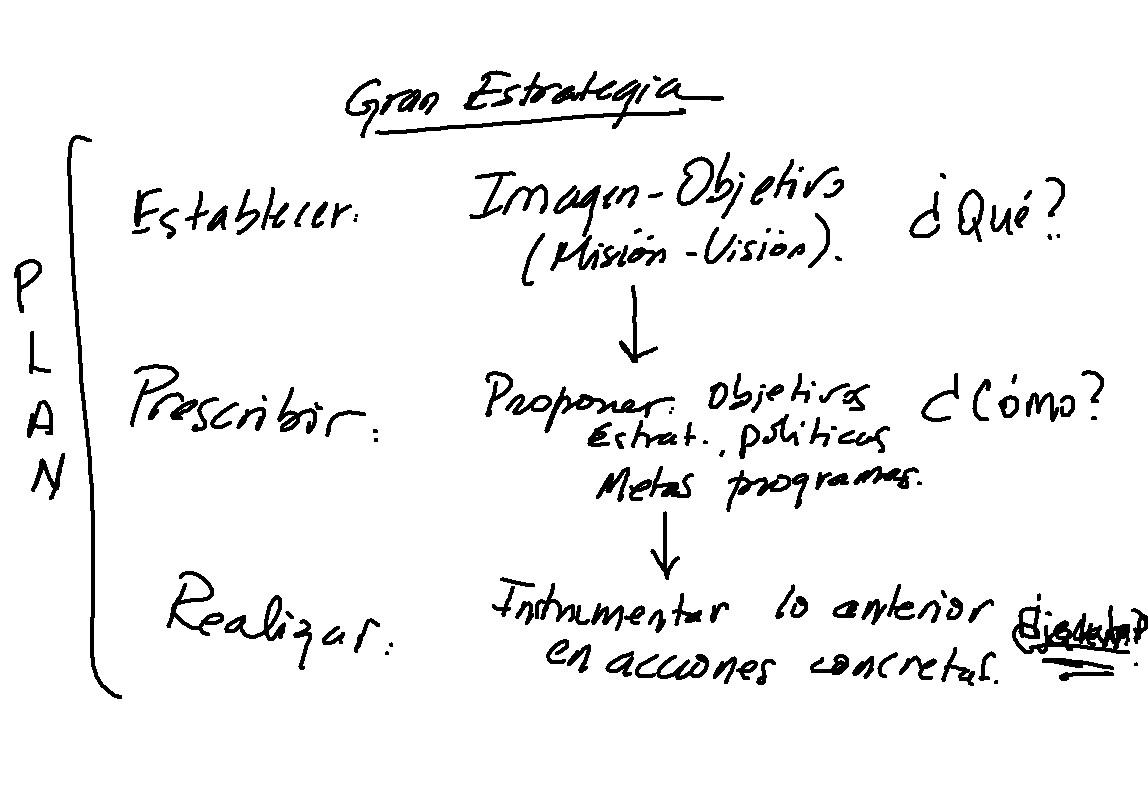 Gran Estrategia
PLAN
Establecer: Imagen-Objetivo ¿Qué?
(Misión-Visión).
Prescribir: Proponer: Objetivos ¿Cómo?
Estrat., políticas
Metas programas.
Realizar: Instrumentar lo anterior
en acciones concretas.